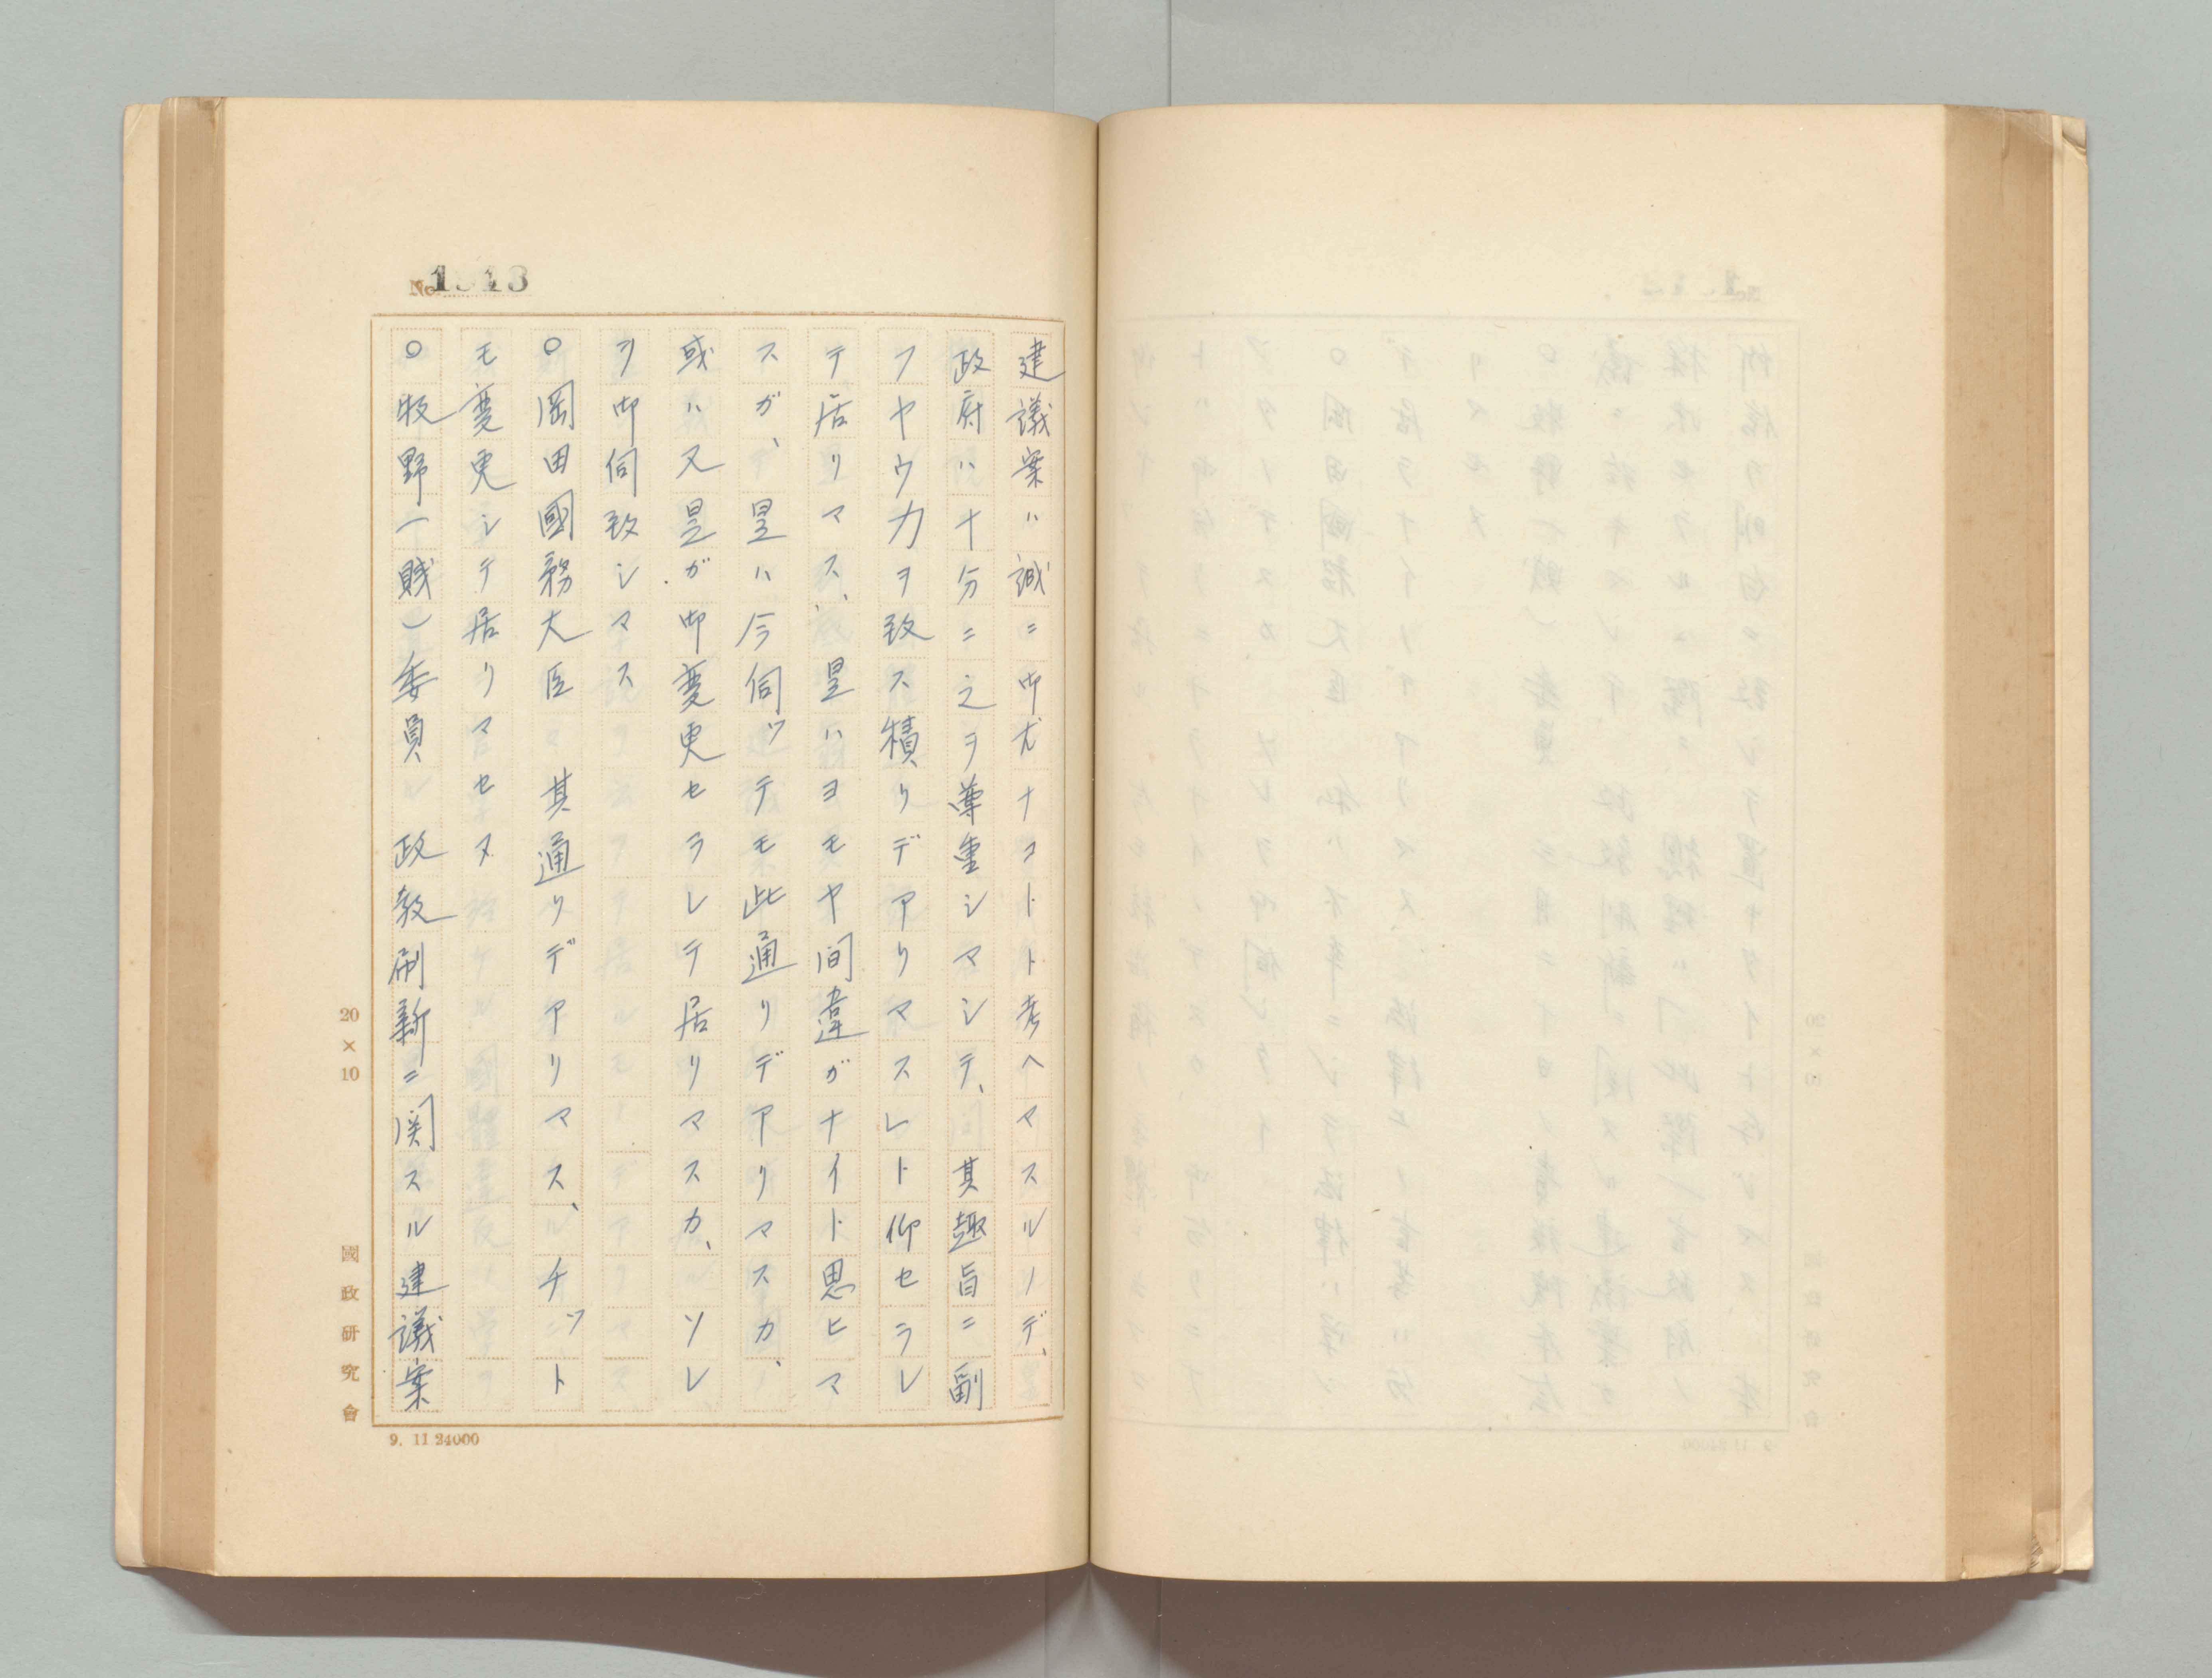 No 1943
建議案ハ誠ニ御尤ナコトト考ヘマスルノデ、
政府ハ十分ニ之ヲ尊重シマシテ、其趣旨ニ副
フヤウ力ヲ致ス積リデアリマスレト仰セラレ
テ居リマス、是ハヨモヤ間違ガナイト思ヒマ
スガ、是ハ今伺ツテモ此通リデアリマスカ、
或ハ又是ガ御変更セラレテ居リマスカ、ソレ
ヲ御伺致シマス
○岡田國務大臣 其通リデアリマス、チツト
モ変更シテ居リマセヌ
○牧野(賤)委員 政教刷新ニ関スル建議案
20×10
國政研究會
9. 11 24000